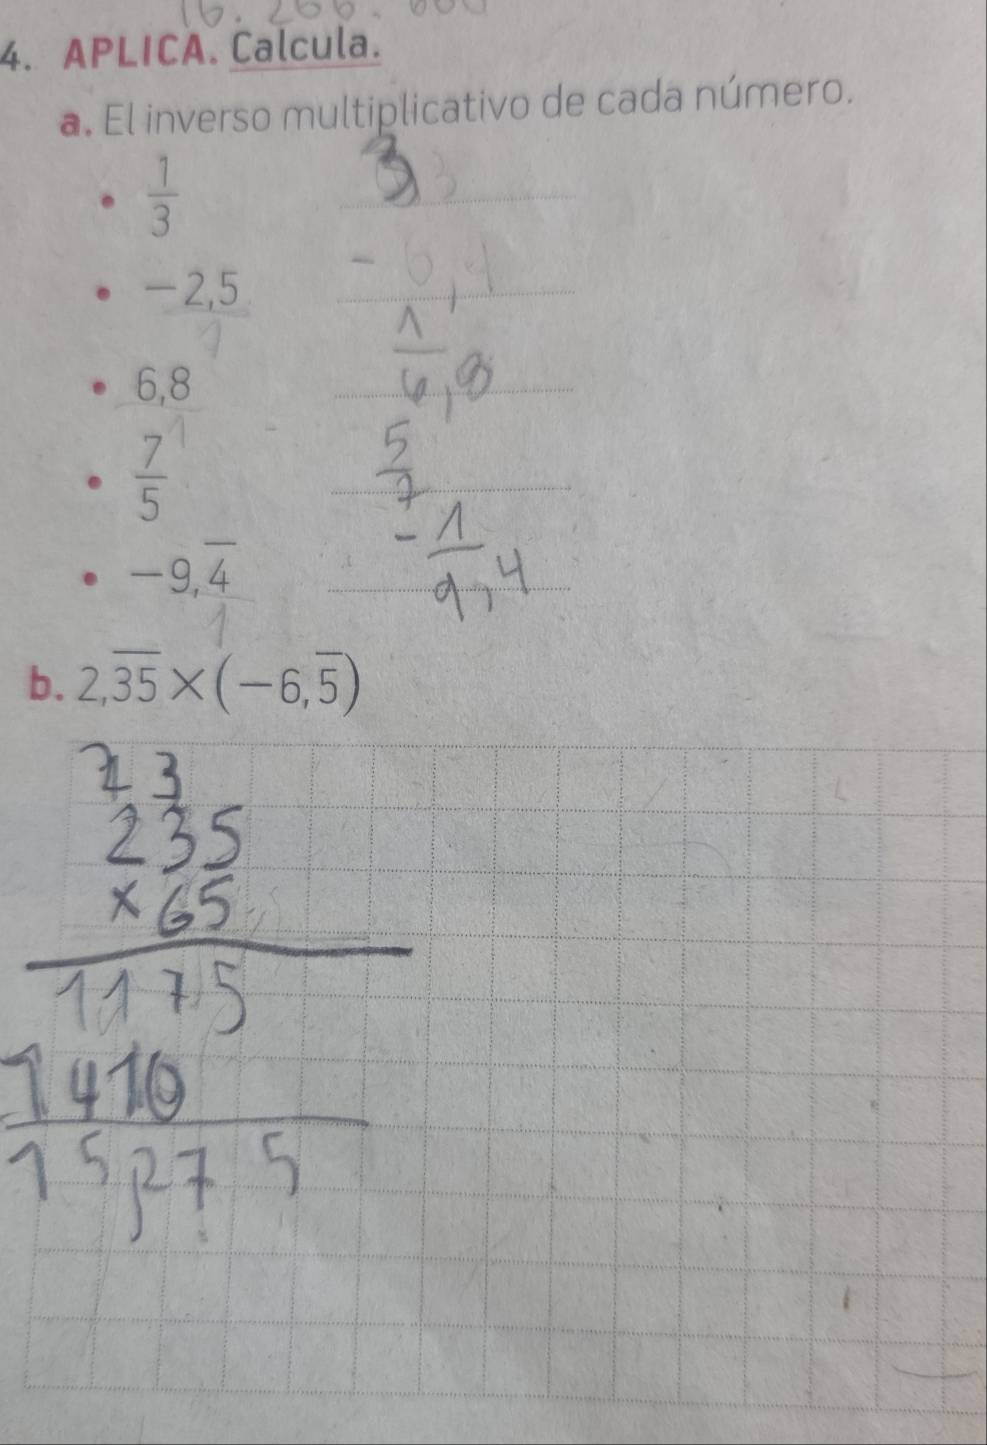 16. 266.
4. APLICA. Calcula.
a. El inverso multiplicativo de cada número.
• 1/3 3
• −2,5 −
1
• 6,8 1/6,8
1
• 7/5 5/7
• −9,4̅ −1/9,4
1
b. 2,3̅5̅ × (−6,5̅)
3
235
× 65
1175
1410
15,275